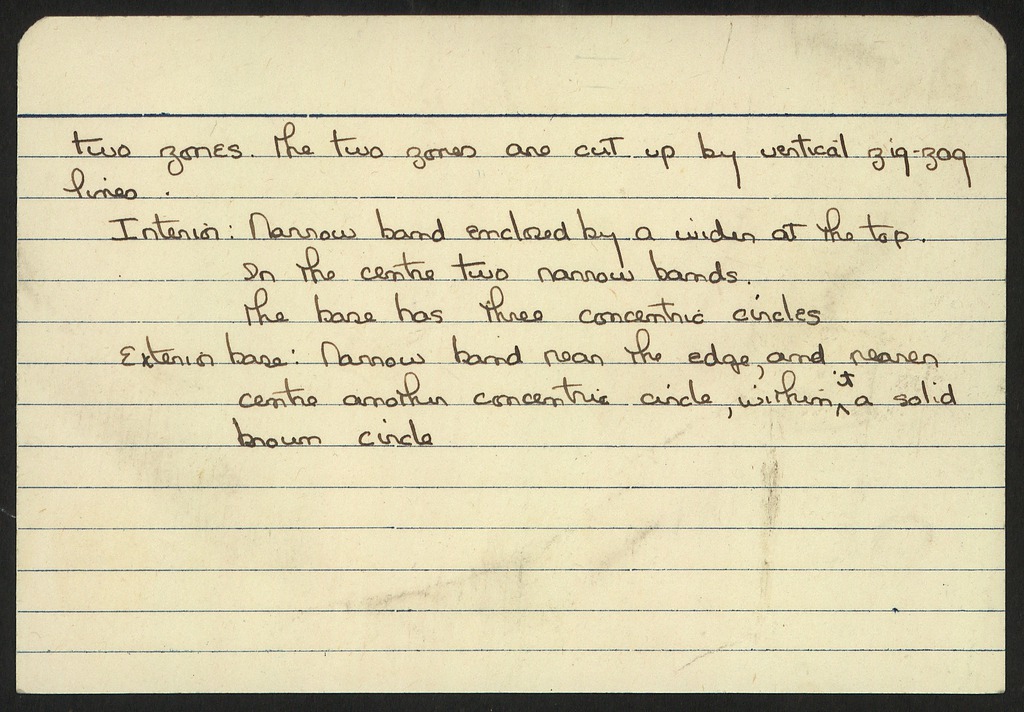 two zones. The two zones are cut up by vertical zig-zag
lines.
Interior: Narrow band enclosed by a wider at the top.
In the centre two narrow bands.
The base has three concentric circles
Exterior base: Narrow band near the edge, and nearer
centre another concentric circle, within it a solid
brown circle